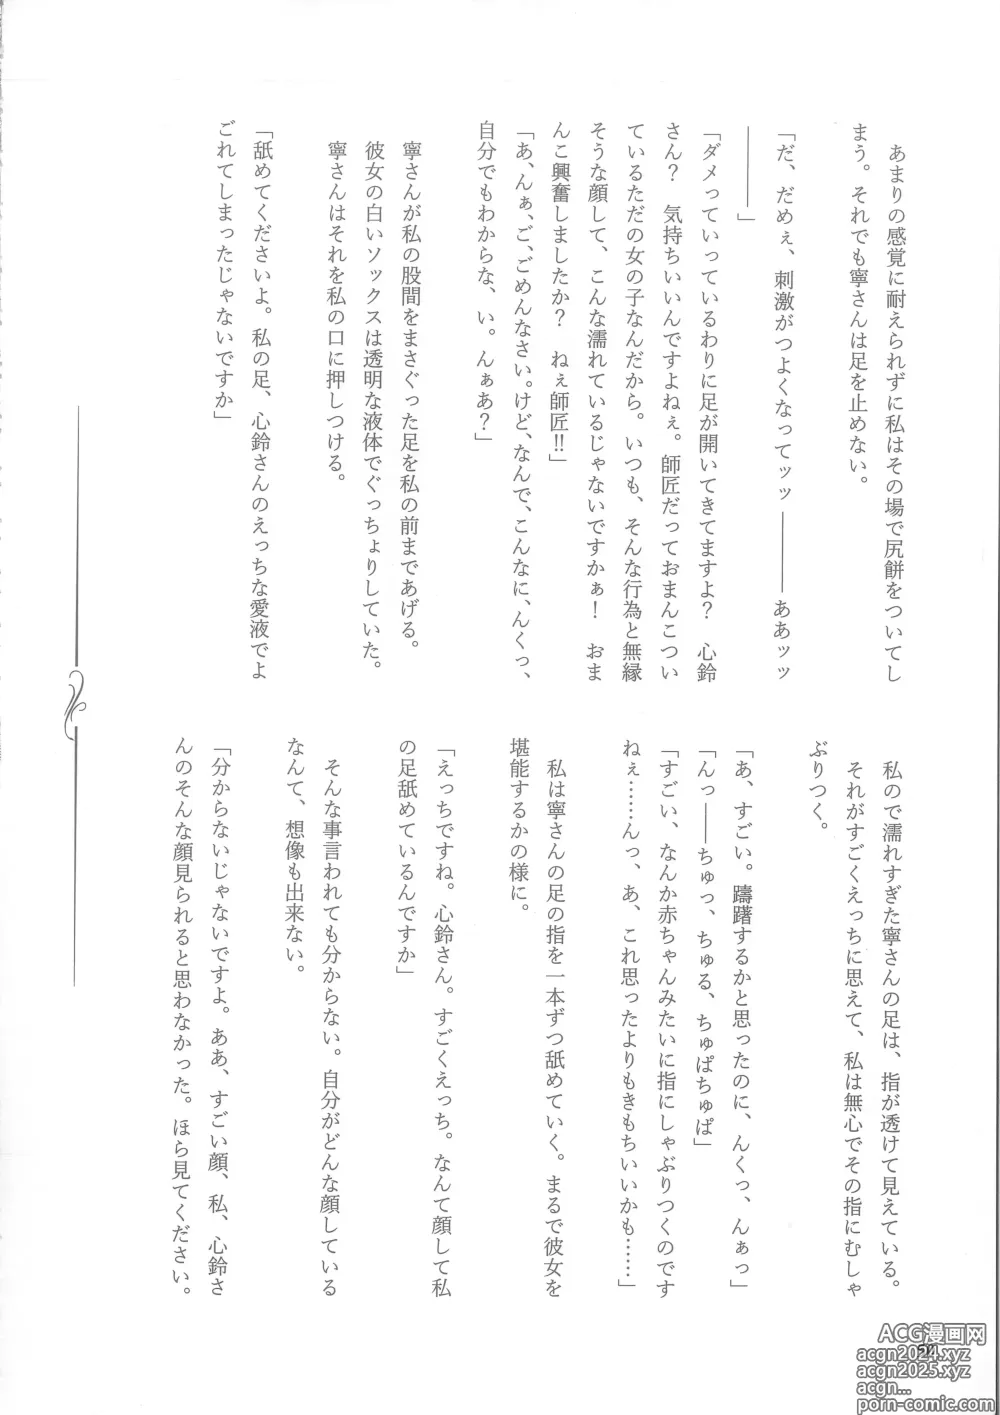 あまりの感覚に耐えられずに私はその場で尻餅をついてし
まう。それでも寧さんは足を止めない。
「だ、だめぇ、刺激がつよくなってッッ ――――ああッッ
――――」
「ダメっていっているわりに足が開いてきてますよ? 心鈴
さん? 気持ちいいんですよねぇ。師匠だっておまんこつい
ているただの女の子なんだから。いつも、そんな行為と無縁
そうな顔して、こんな濡れているじゃないですかぁ! おま
んこ興奮しましたか? ねぇ師匠!!」
「あ、んぁ、ご、ごめんなさい。けど、なんで、こんなに、んくっ、
自分でもわからな、い。んぁあ?」
寧さんが私の股間をまさぐった足を私の前まであげる。
彼女の白いソックスは透明な液体でぐっちょりしていた。
寧さんはそれを私の口に押しつける。
「舐めてくださいよ。私の足、心鈴さんのえっちな愛液でよ
ごれてしまったじゃないですか」
私ので濡れすぎた寧さんの足は、指が透けて見えている。
それがすごくえっちに思えて、私は無心でその指にむしゃ
ぶりつく。
「あ、すごい。躊躇するかと思ったのに、んくっ、んぁっ」
「んっ――ちゅっ、ちゅる、ちゅぱちゅぱ」
「すごい、なんか赤ちゃんみたいに指にしゃぶりつくのです
ねぇ……んっ、あ、これ思ったよりもきもちいいかも……」
私は寧さんの足の指を一本ずつ舐めていく。まるで彼女を
堪能するかの様に。
「えっちですね。心鈴さん。すごくえっち。なんて顔して私
の足舐めているんですか」
そんな事言われても分からない。自分がどんな顔している
なんて、想像も出来ない。
「分からないじゃないですよ。ああ、すごい顔、私、心鈴さ
んのそんな顔見られると思わなかった。ほら見てください。
ACG漫画网
acgn2024.xyz
acgn2025.xyz
acgn...
porn-comic.com